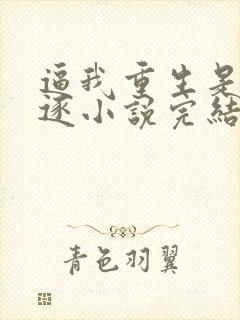 逼我重生是
逐小說完結
青色羽翼